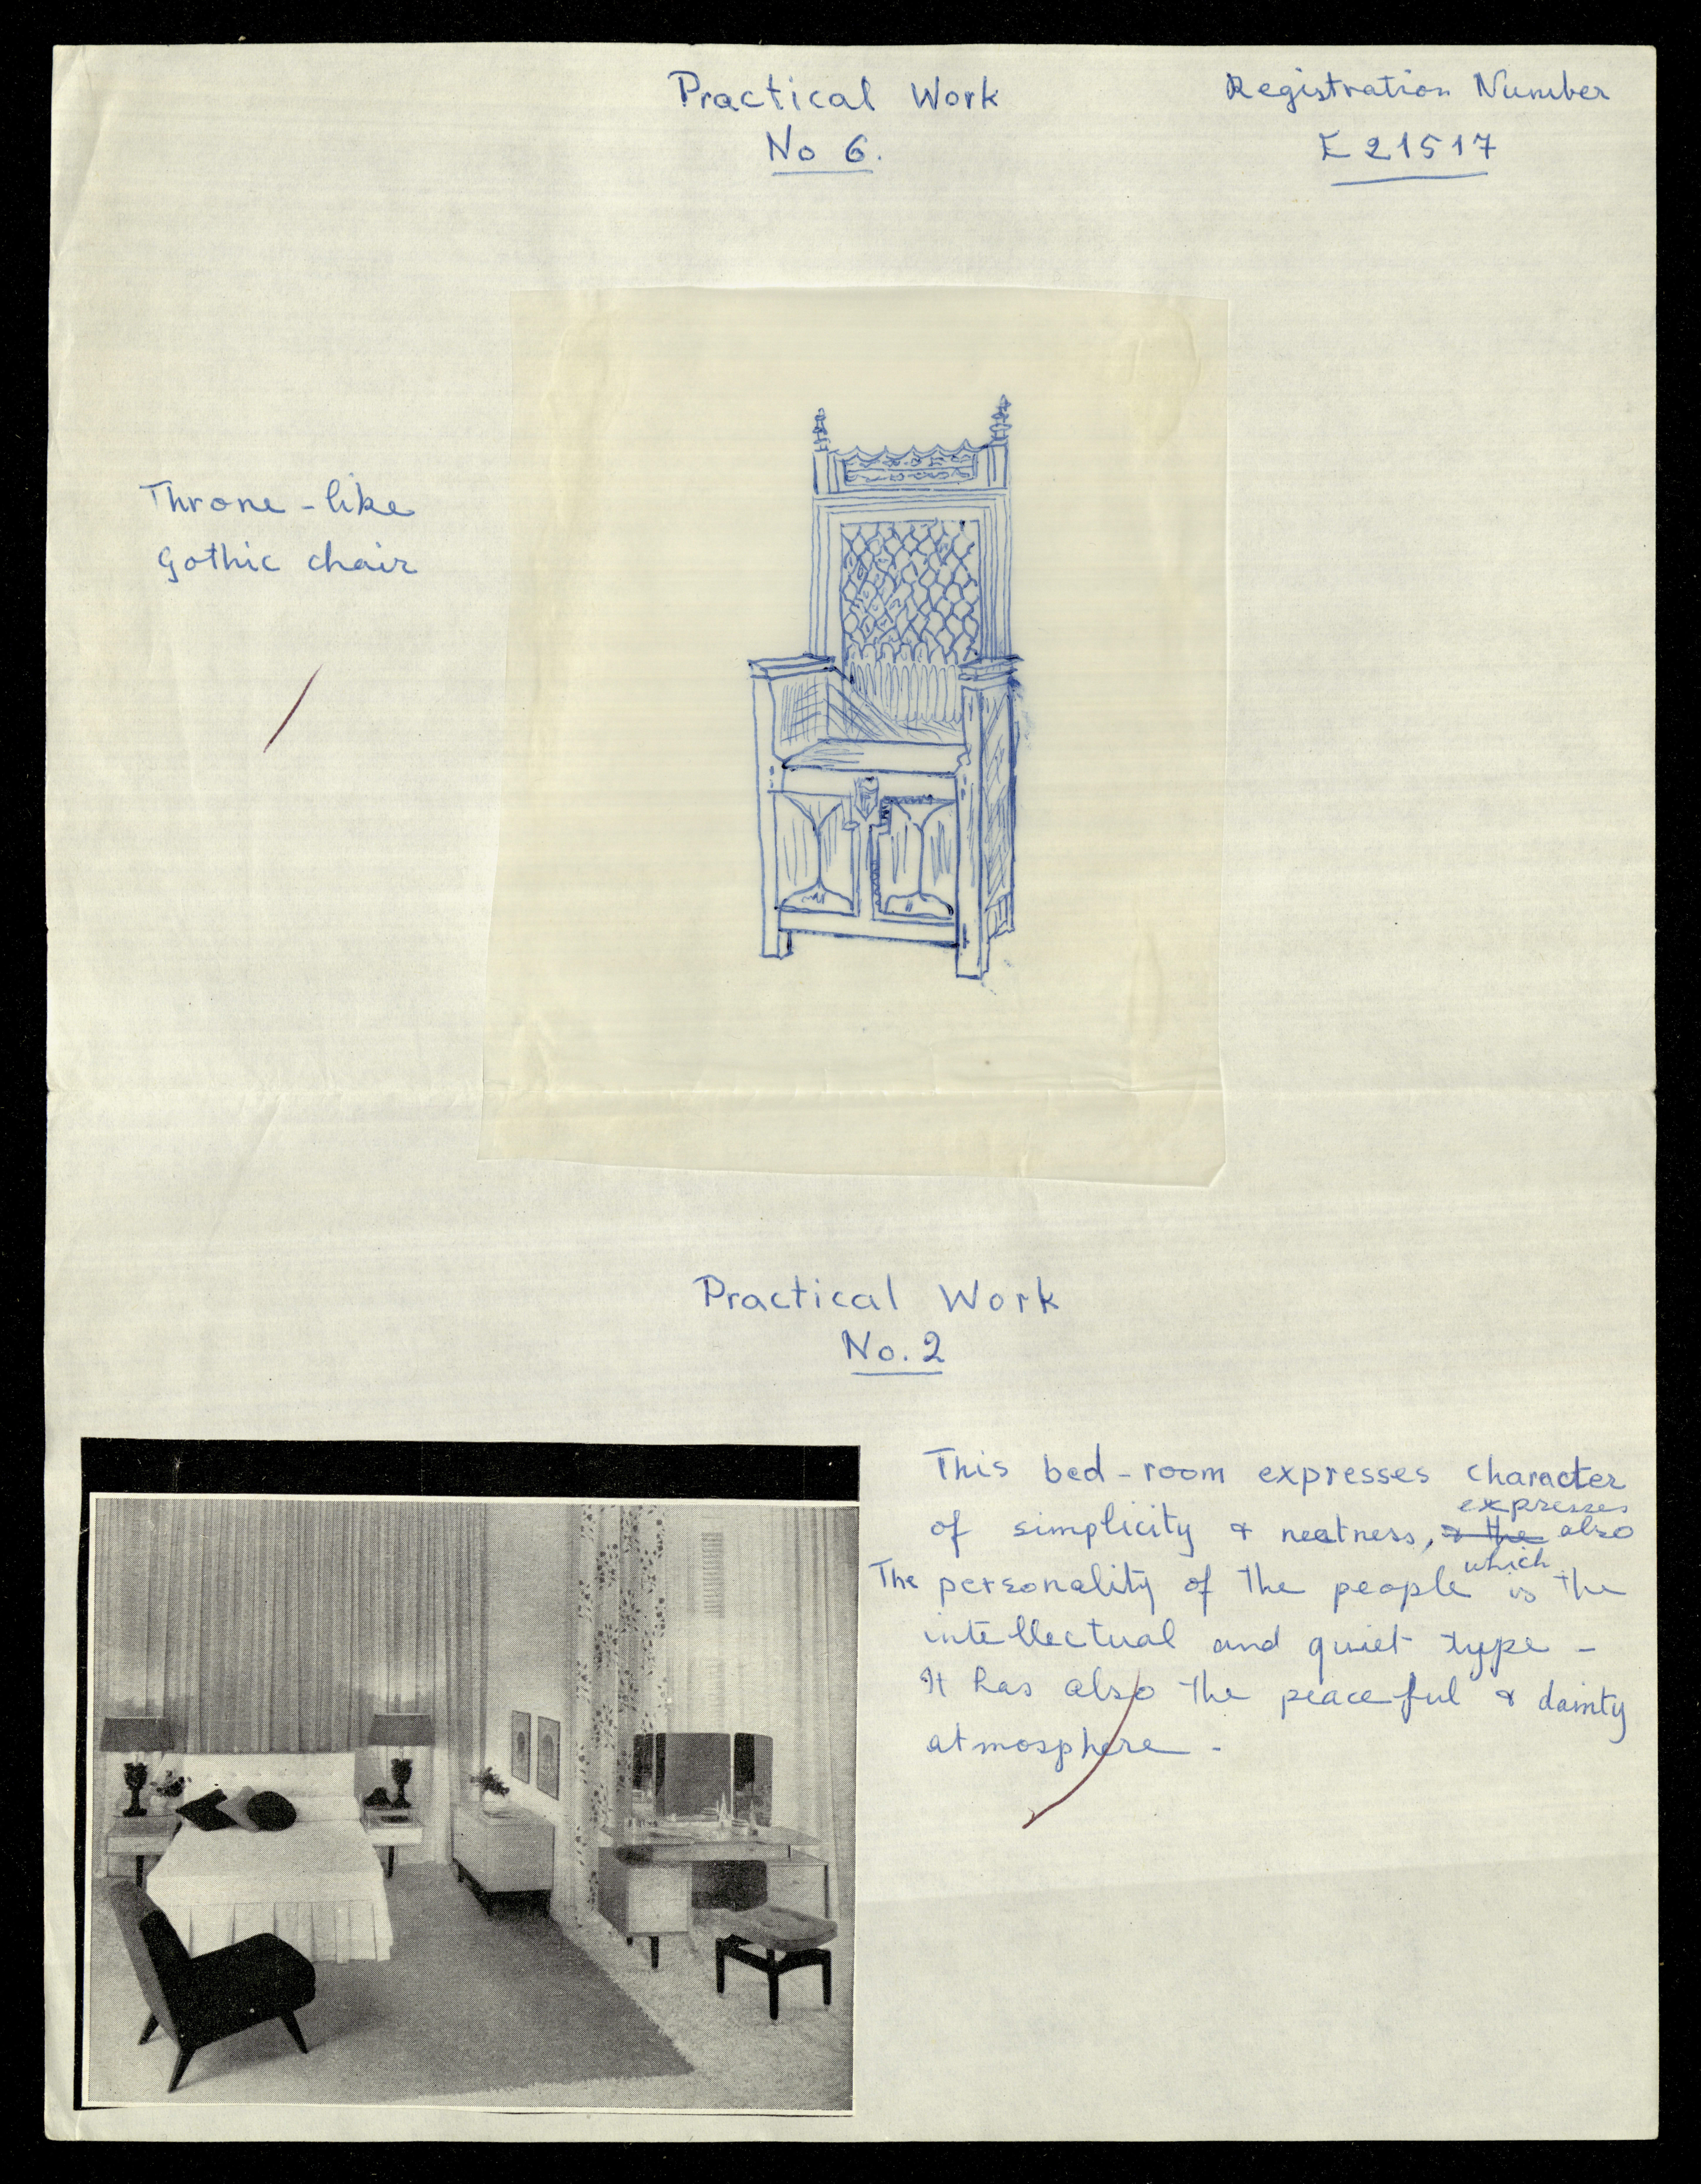 Practical Work
No 6.
Registration Number
E 21517
Throne-like
Gothic chair
Practical Work
No. 2
This bed-room expresses character
expresses
of simplicity & neatness, & the also
which
The personality of the people is the
intellectual and quiet type -
It has also the peaceful & dainty
atmosphere -